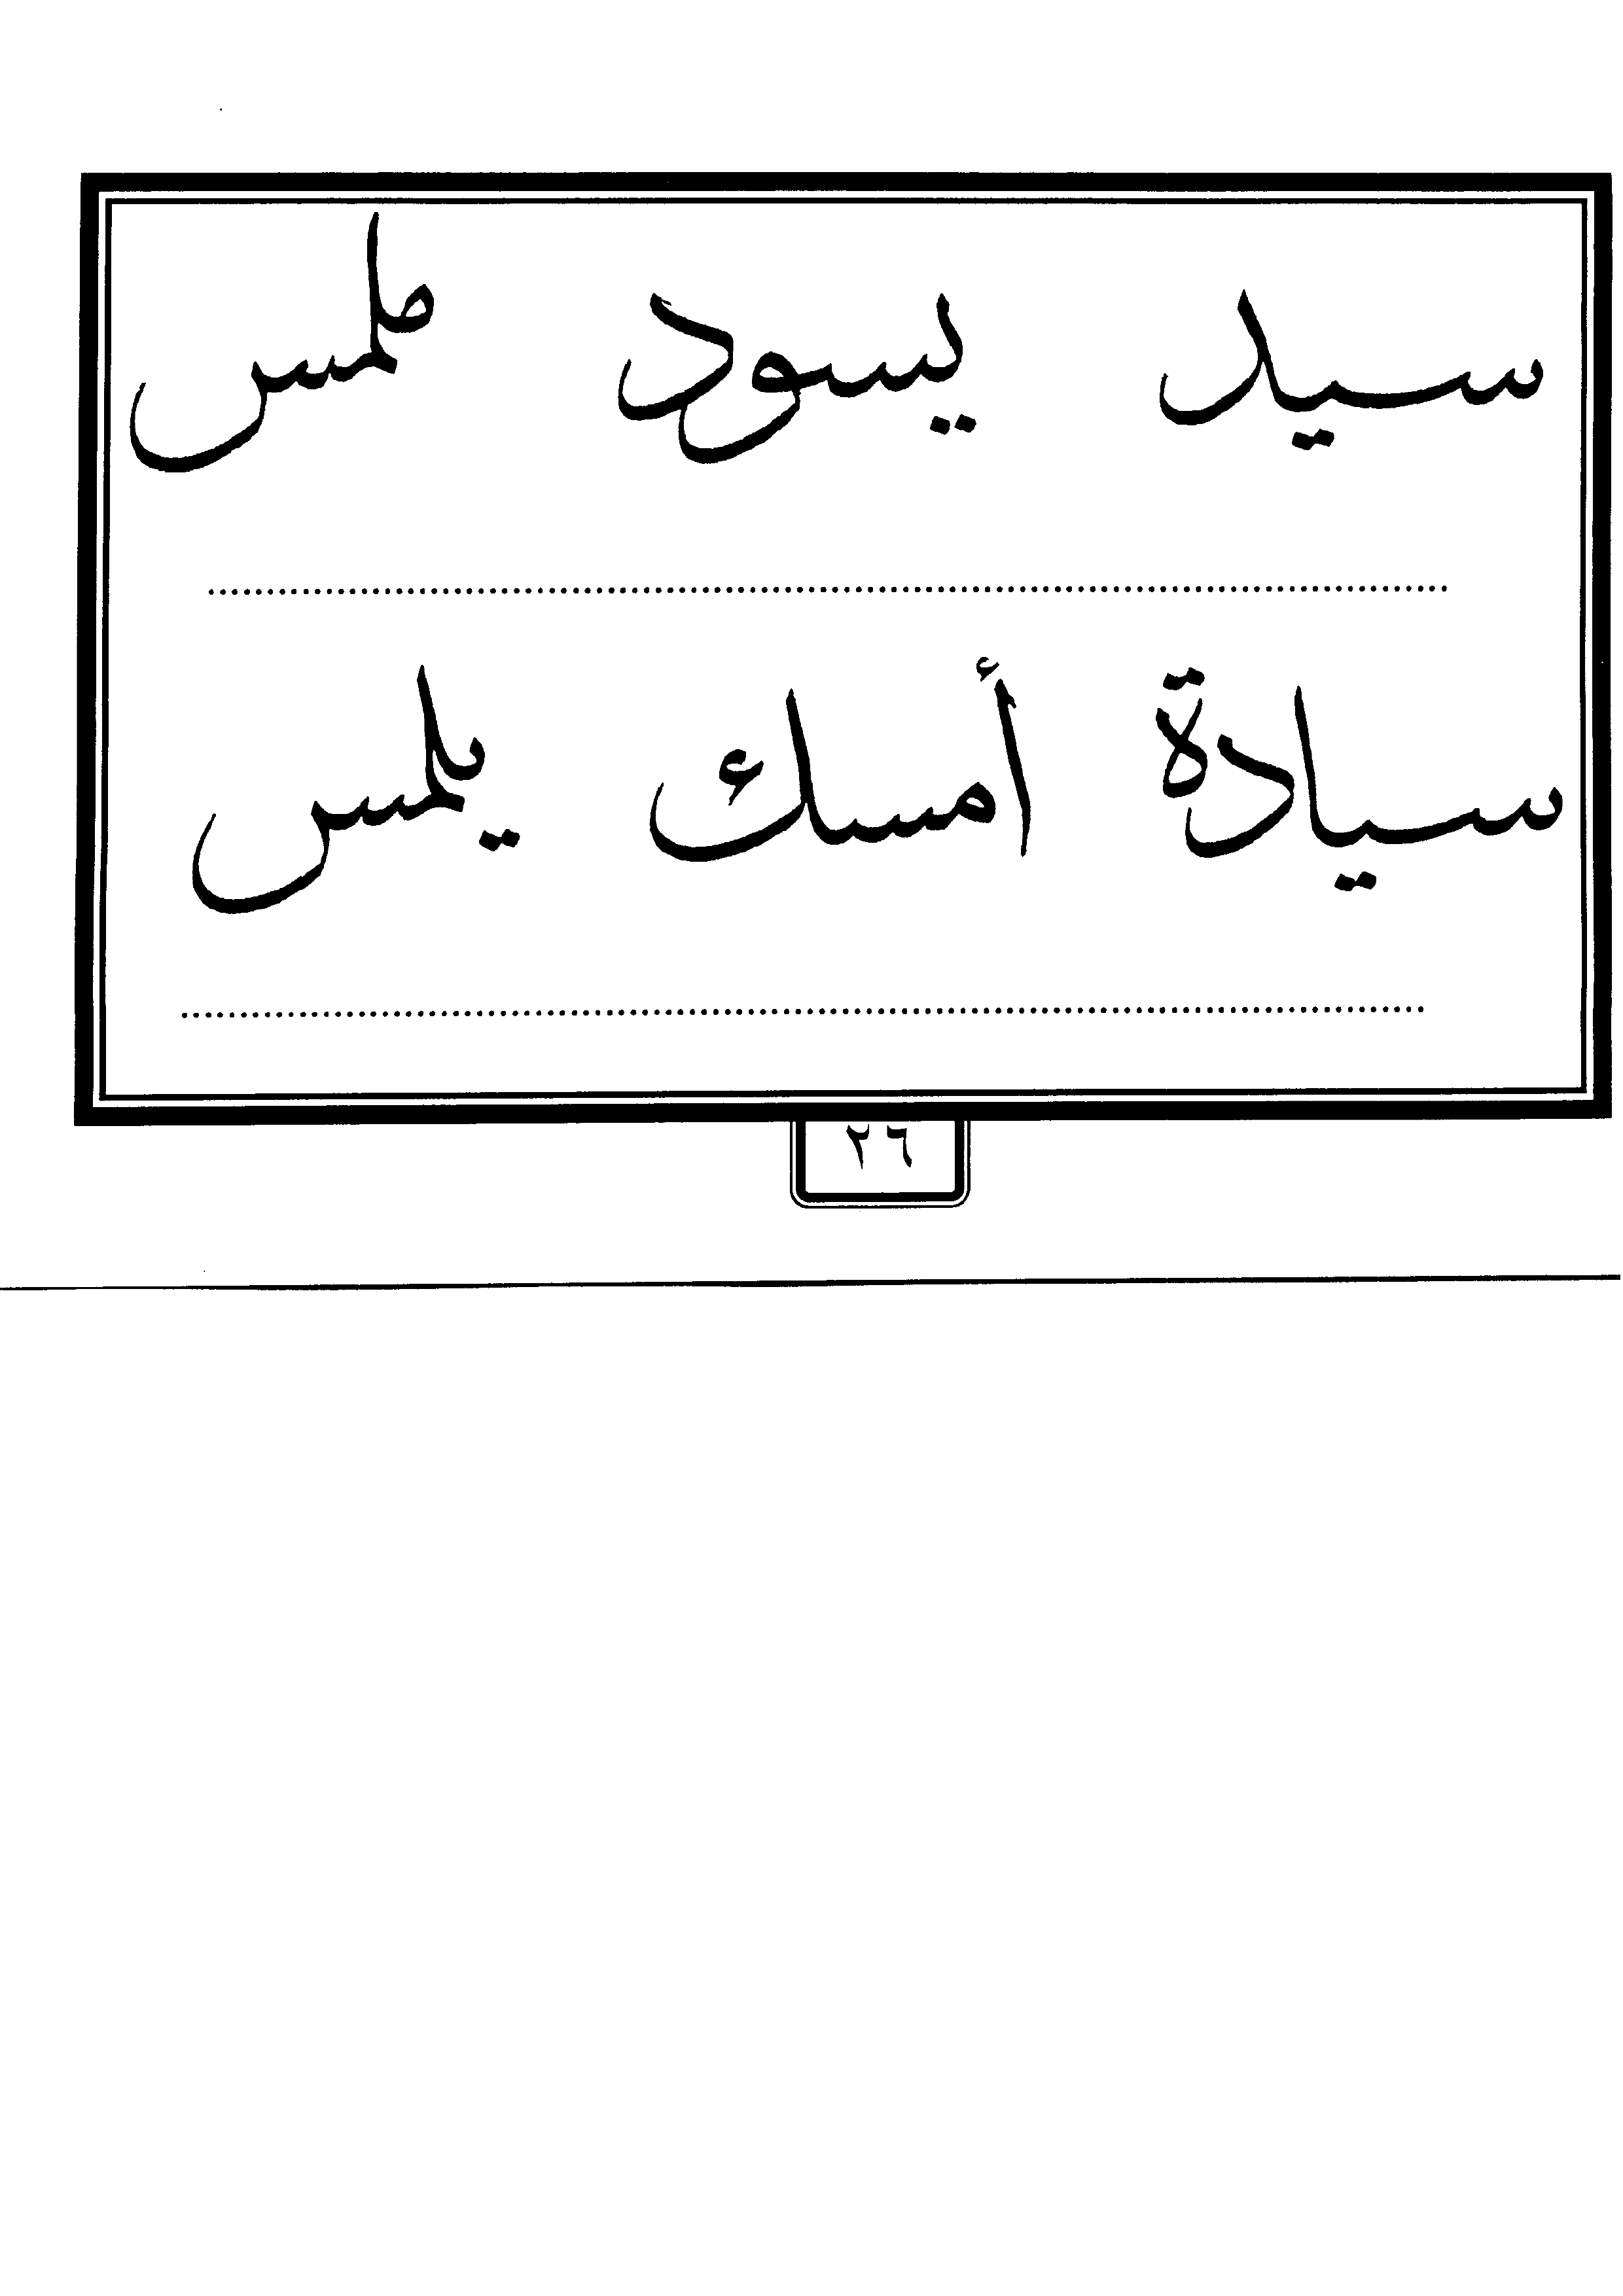 سيد يسود ملمس
سيادة أمسك يلمس
٢٦